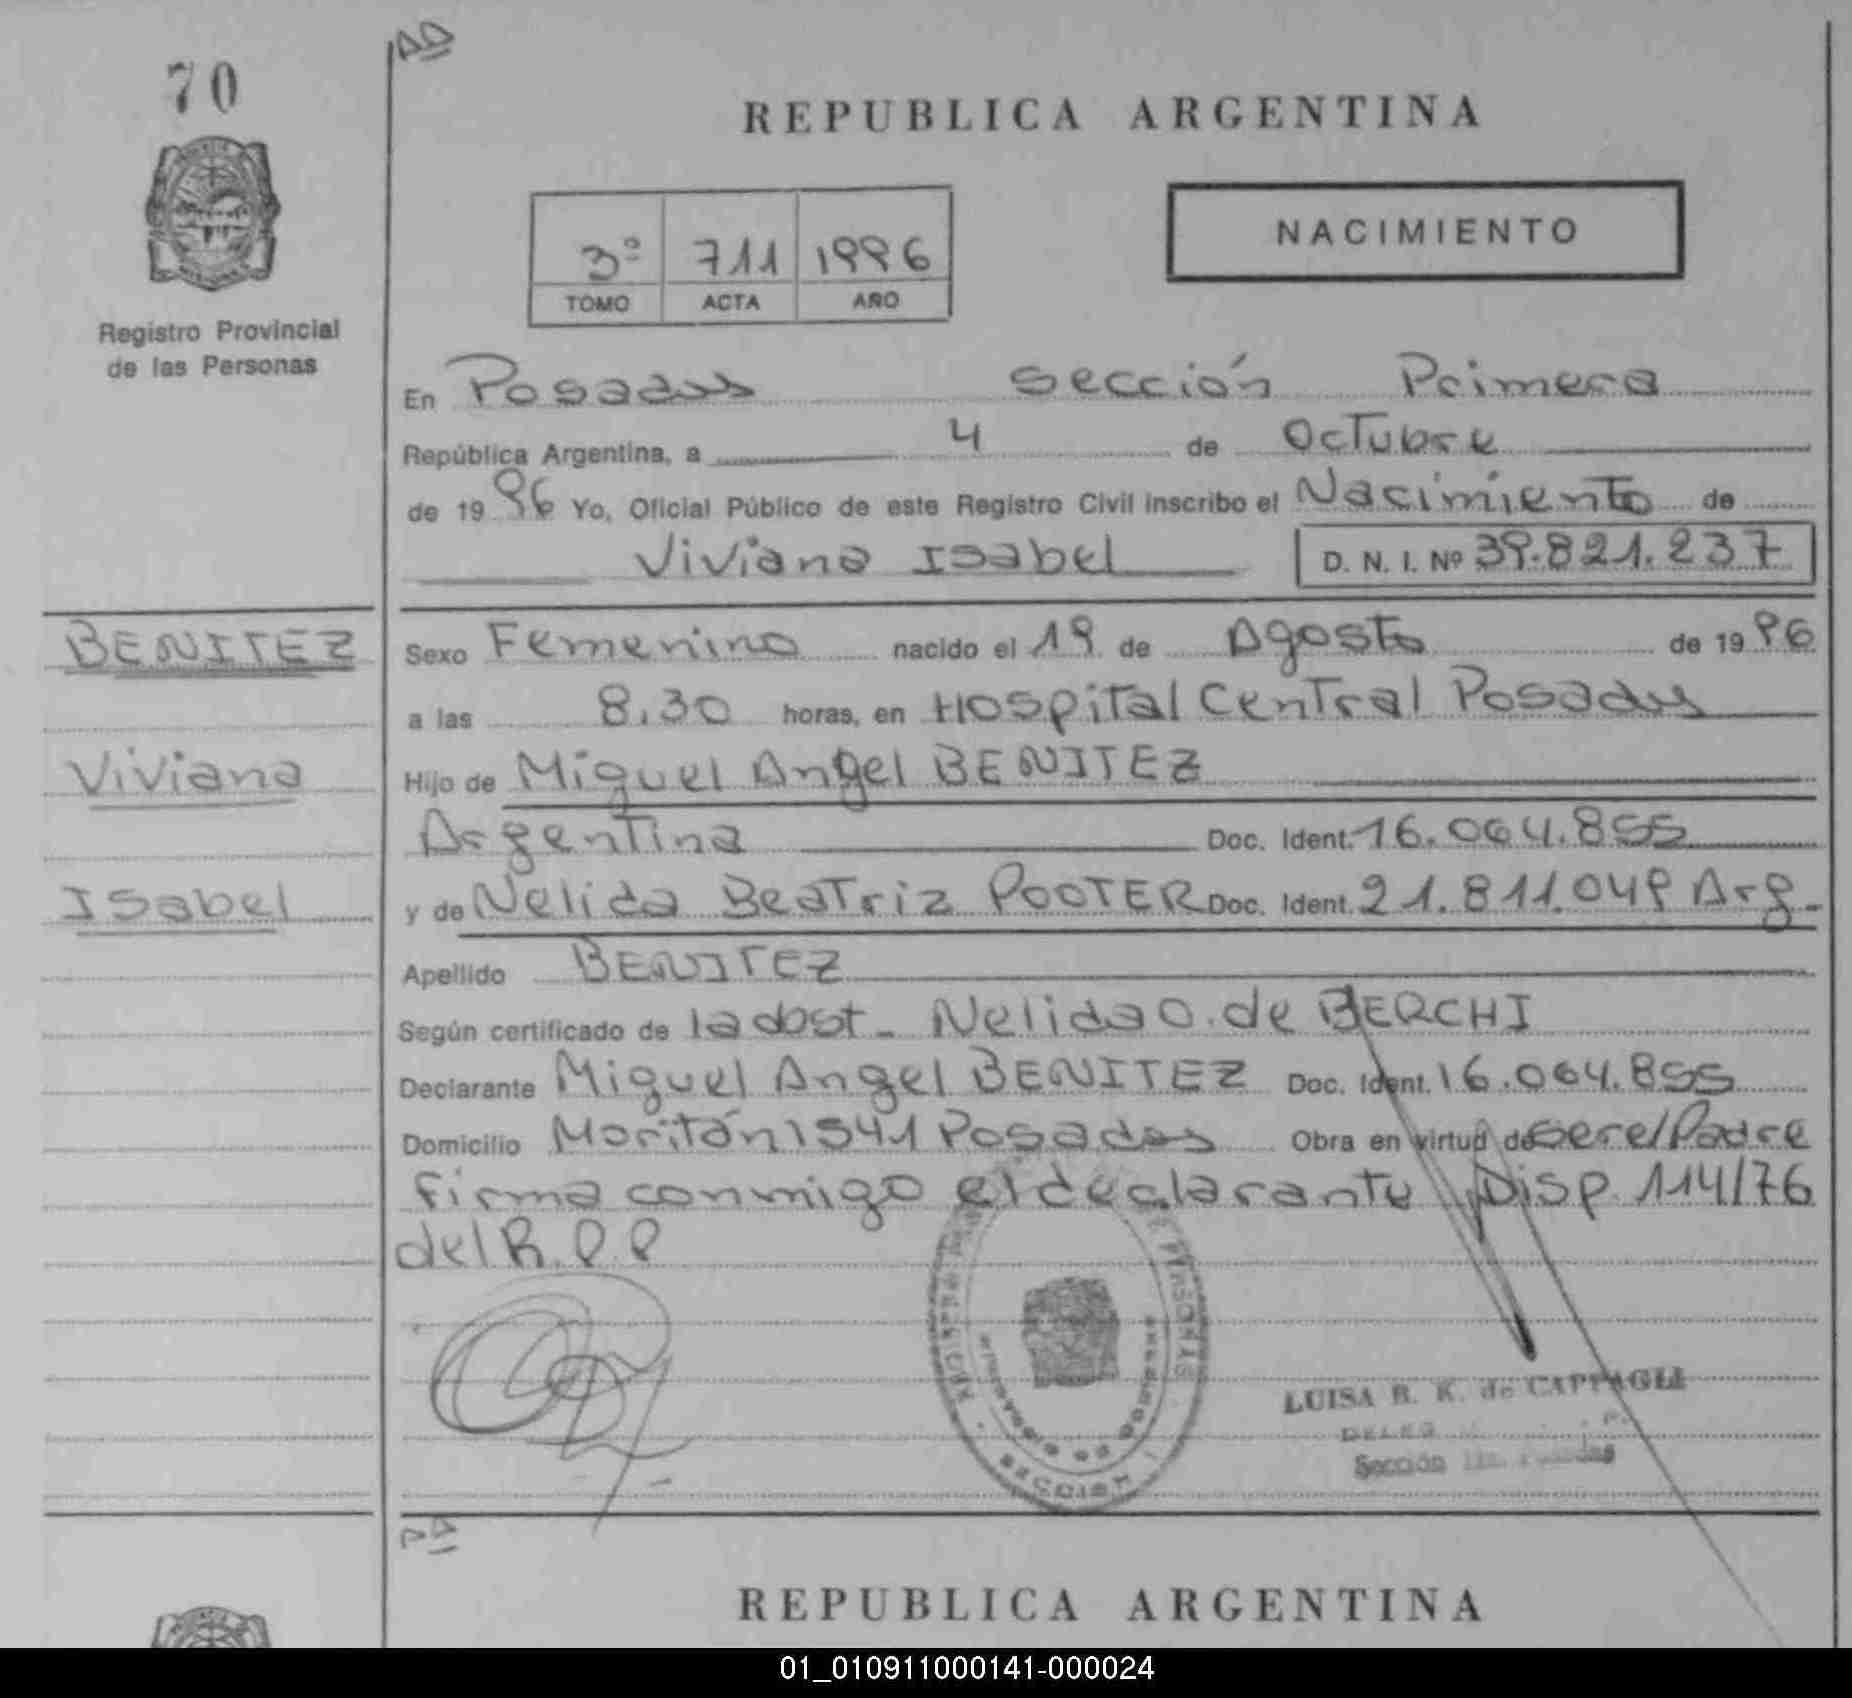 70
REPUBLICA ARGENTINA
NACIMIENTO
3º 711 1996
TOMO ACTA AÑO
Registro Provincial
de las Personas
En Posadas sección Primera
República Argentina, a 4 de Octubre
de 1996 Yo, Oficial Público de este Registro Civil inscribo el Nacimiento de
Viviana Isabel D. N. I. Nº 39.821.237
BENITEZ
Viviana
Isabel
Sexo Femenino nacido el 19 de Agosto de 1996
a las 8,30 horas, en Hospital Central Posadas
Hijo de Miguel Angel BENITEZ
Argentina Doc. Ident. 16.064.855
y de Nelida Beatriz POOTER Doc. Ident. 21.811.049 Arg.
Apellido BENITEZ
Según certificado de la obst. Nelida O. de BERCHI
Declarante Miguel Angel BENITEZ Doc. Ident. 16.064.855
Domicilio Moritán 1541 Posadas Obra en virtud de ser el Padre
firma conmigo el declarante Disp. 114/76
del R.P.P
LUISA R. K. de CAPPAGLI
Sección
REPUBLICA ARGENTINA
01_010911000141-000024